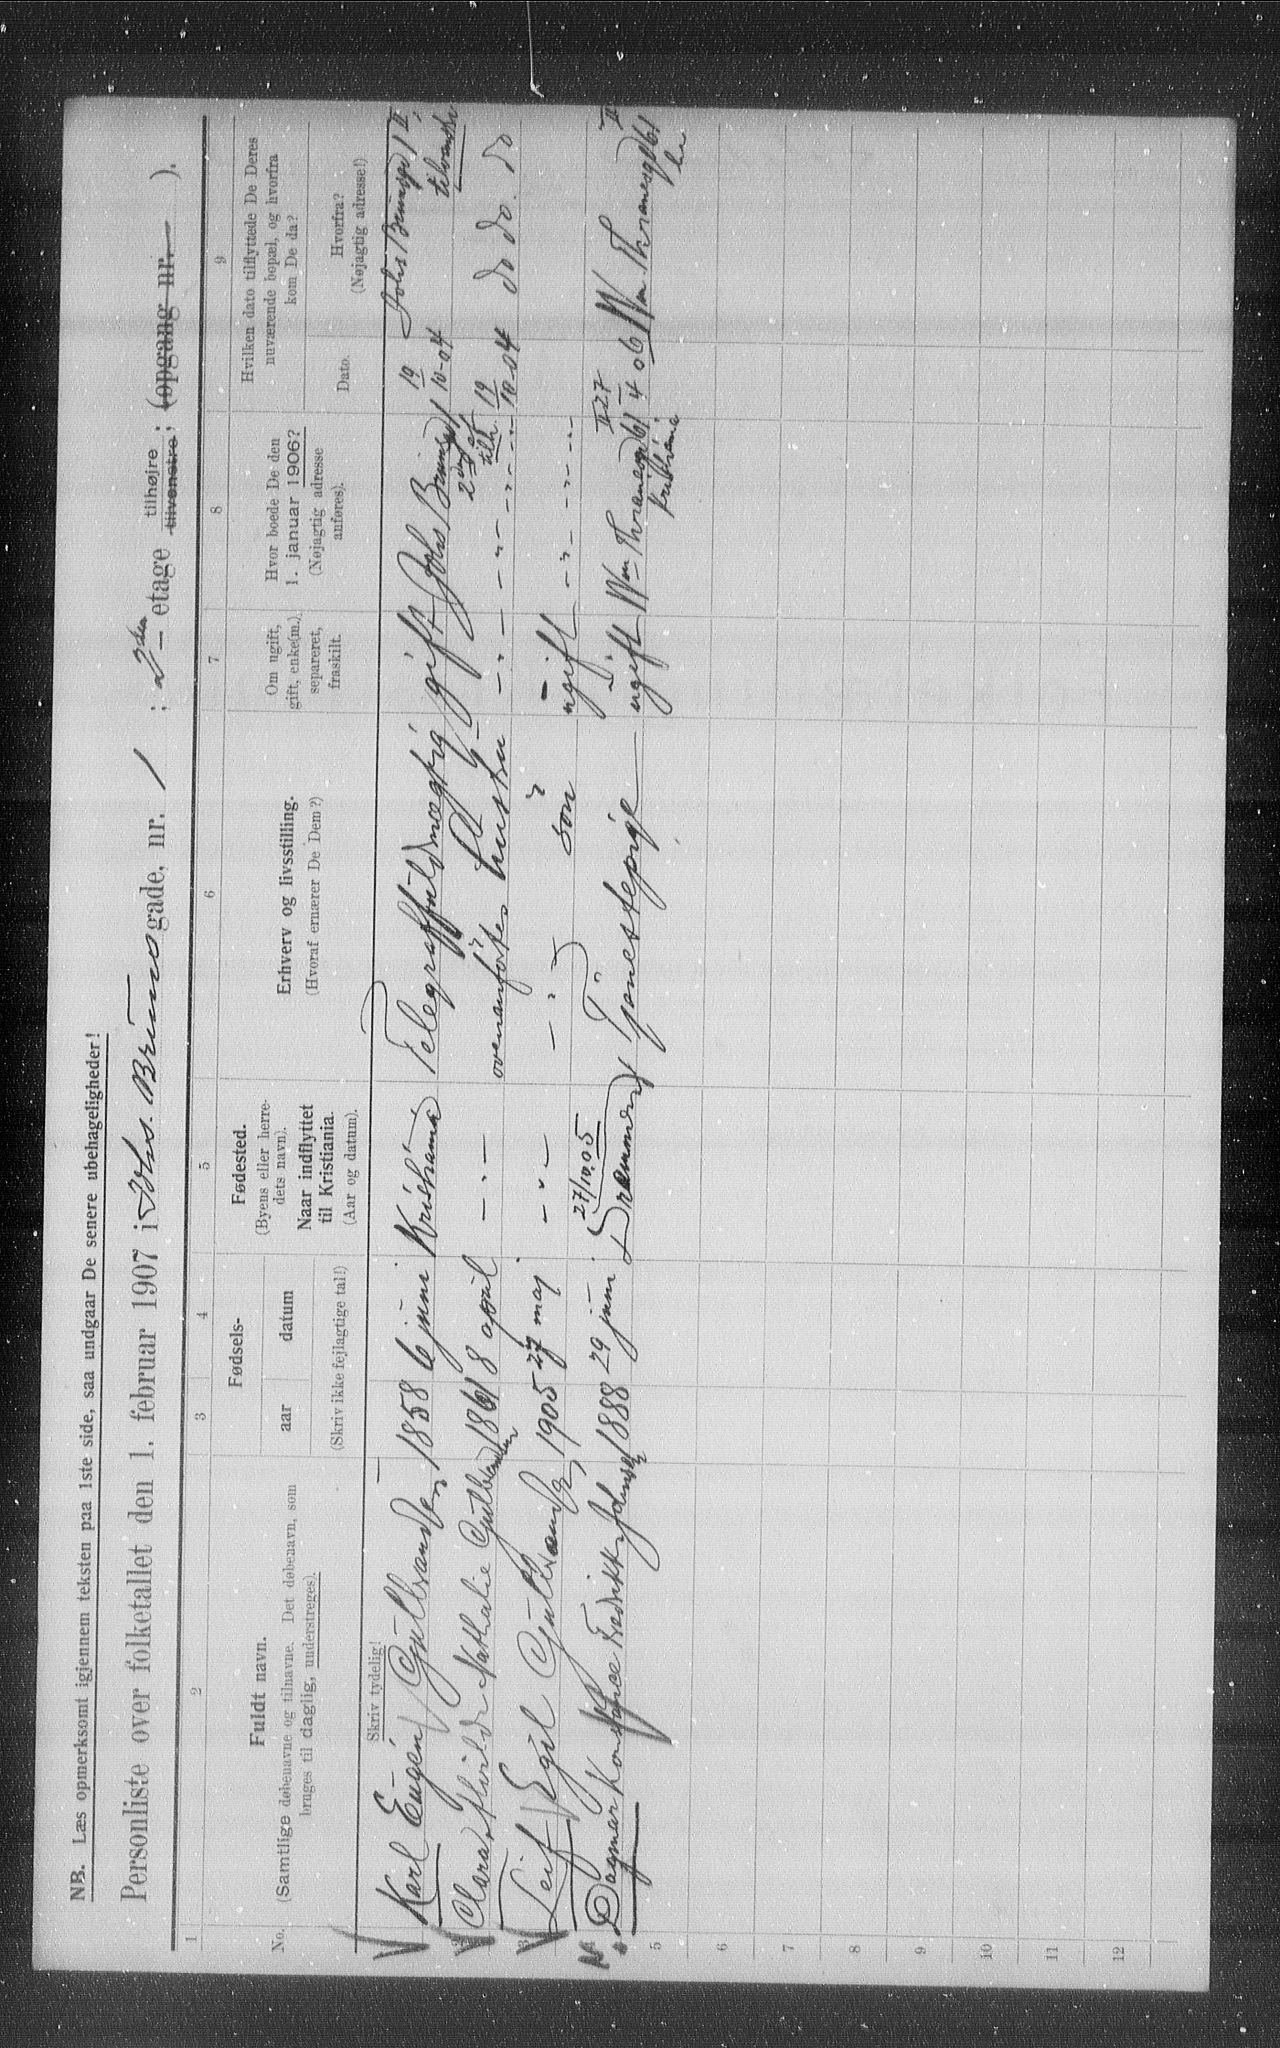 NB. Læs opmerksomt igjennem teksten paa 1ste side, saa undgaar De senere ubehageligheder!
Personliste over folketallet den 1. februar 1907 i Johs. Bruns gade, nr. 1 ; 2den etage tilhøjre tilvenstre ; (opgang nr. — ).
1 2 3 4 5 6 7 8 9
No.
Fuldt navn.
(Samtlige døbenavne og tilnavne. Det døbenavn, som
bruges til daglig, understreges).
Fødsels-
aar datum
(Skriv ikke fejlagtige tal!)
Fødested.
(Byens eller herre-
dets navn).
Naar indflyttet
til Kristiania.
(Aar og datum).
Erhverv og livsstilling.
(Hvoraf ernærer De Dem?)
Om ugift,
gift, enke(m.)
separeret,
fraskilt.
Hvor boede De den
1. januar 1906?
(Nøjagtig adresse
anføres).
Hvilken dato tilflyttede De Deres
nuværende bopæl, og hvorfra
kom De da?
Dato.
Hvorfra?
(Nøjagtig adresse!)
Skriv tydelig!
Karl Eugén Gulbrandsen 1858 6 juni Kristiania Telegraffuldmægtig gift Johs Brunsgd 1 2den et tilh. 19/10-04 Johs Brunsgd 1 II tilvenstre
2 Clara Nathalie Gulbrandsen 1861 8 april — " — ovenanførtes hustru — " — — " — 19/10-04 do do. do
3 Leif Egil Gulbrandsen 1905 27 maj — " — — " — søn ugift — " — — " —
4 Dagmar Konstance Fredrikke Johnsen 1888 29 juni 27/10.05 Drammen Tjenestepige ugift Wm Thranesgd 61 II Kristiania 27/4 06 Wm Thranesgd 61 II
5
6
7
8
9
10
11
12